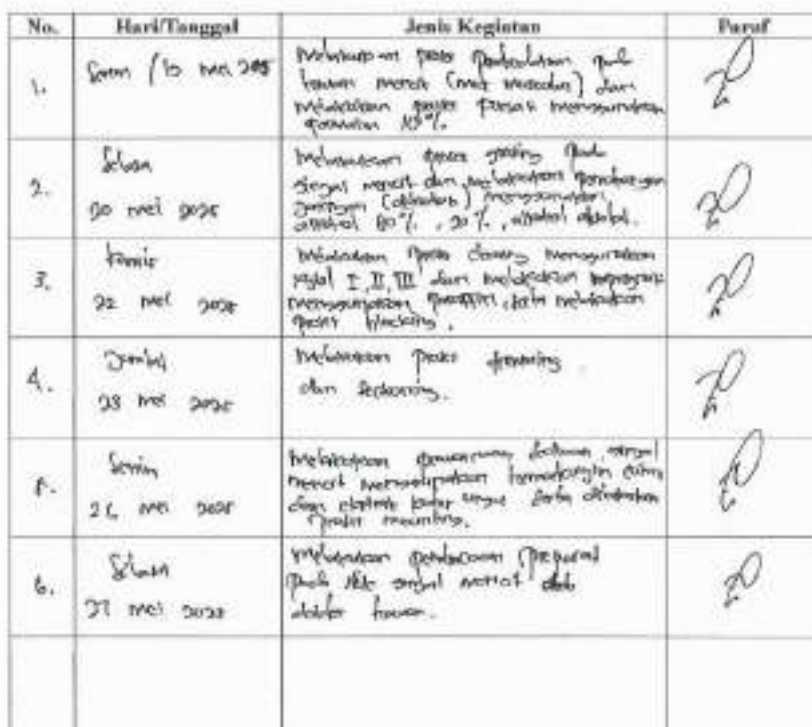 No. Hari/Tanggal Jenis Kegiatan Paraf
1. Senin / 19 mei 2025
Melakukan proses pembedahan pada
hewan mencit (mus musculus) dan
melakukan proses fiksasi menggunakan
formalin 10%.
2. Selasa
20 mei 2025
Melakukan proses grossing pada
ginjal mencit dan melakukan
jaringan (dehidrasi) menggunakan
alkohol 80%, 90%, alkohol absolut.
3. Kamis
22 mei 2025
Melakukan proses clearing menggunakan
xylol I, II, III dan melakukan
menggunakan paraffin serta melakukan
proses blocking.
4. Jum'at
23 mei 2025
Melakukan proses trimming
dan sectioning.
5. Senin
26 mei 2025
Melakukan pewarnaan sediaan ginjal
mencit menggunakan hematoxylin
dan serta dilakukan
proses mounting.
6. Selasa
27 mei 2025
Melakukan pembacaan preparat
pada ginjal mencit oleh
dokter hewan.